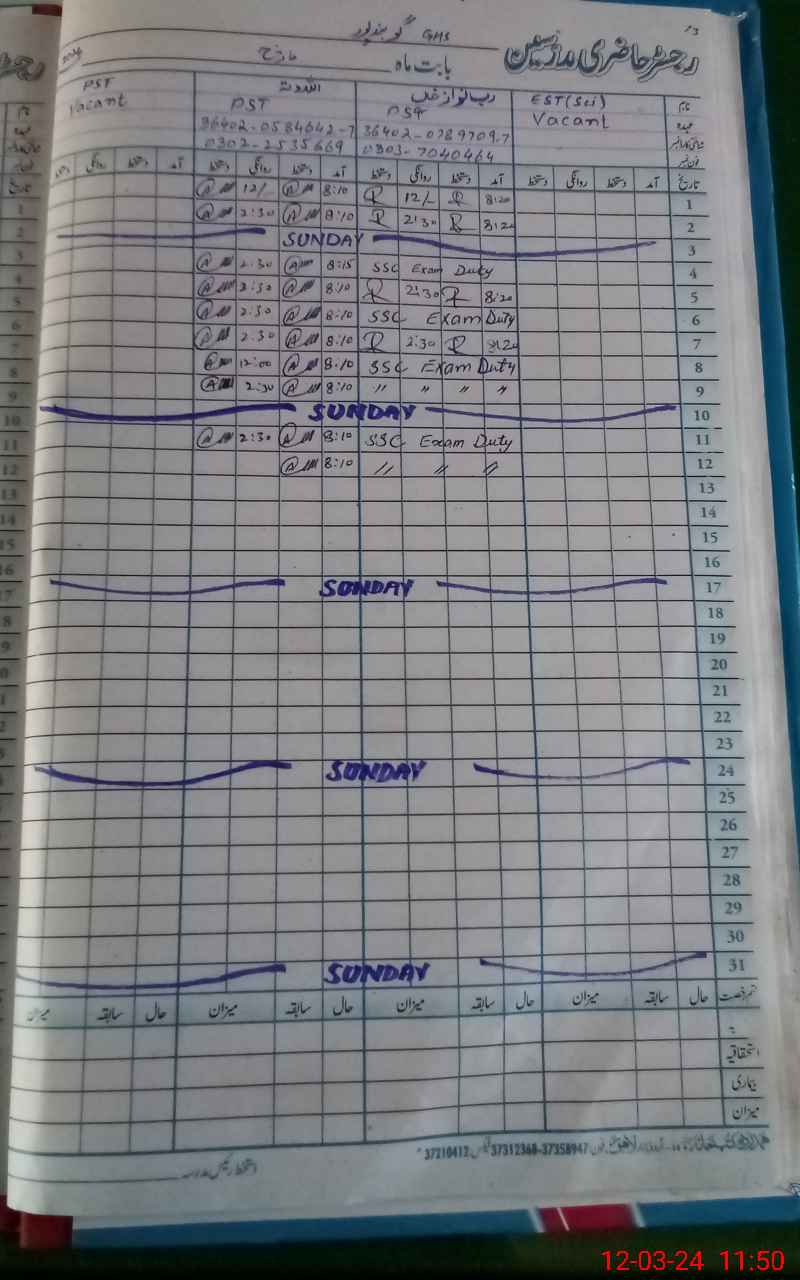 ۱۳
رجسٹر حاضری مدرسین GHS گوبند پور
بابت ماہ مارچ 2024
نام EST(Sci) رب نواز خان اللہ دتہ PST
عہدہ Vacant PST PST Vacant
36402-0789709-7 36402-0584642-7
0303-7040464 0302-2535669
تاریخ آمد دستخط روانگی دستخط آمد دستخط روانگی دستخط آمد دستخط روانگی دستخط آمد دستخط روانگی دستخط
1 8:20 12/- 8:10 12/-
2 8:20 2:30 8:10 2:30
3 SUNDAY
4 SSC Exam Duty 8:15 2:30
5 8:20 2:30 8:10 2:30
6 SSC Exam Duty 8:10 2:30
7 8:20 2:30 8:10 2:30
8 SSC Exam Duty 8:10 12:00
9 " " " " 8:10 2:30
10 SUNDAY
11 SSC Exam Duty 8:10 2:30
12 " " " 8:10
13
14
15
16
17 SUNDAY
18
19
20
21
22
23
24 SUNDAY
25
26
27
28
29
30
31 SUNDAY
قسم رخصت حال سابقہ میزان حال سابقہ میزان حال سابقہ میزان حال سابقہ میزان
استحقاقیہ
بیماری
میزان
37312368-37358947 37210412
دستخط رئیس مدرسہ
12-03-24 11:50